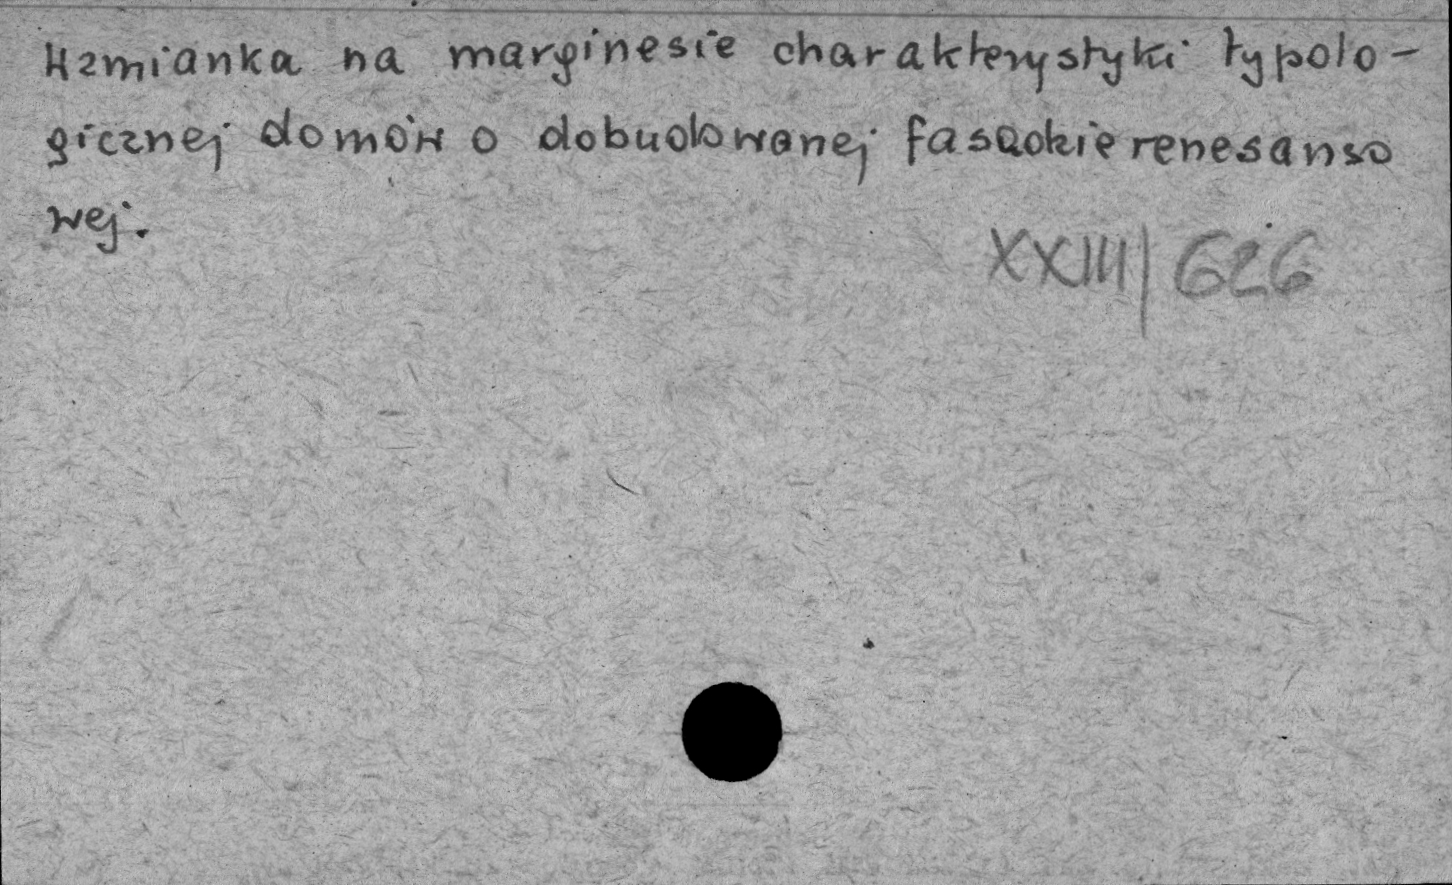 Wzmianka na marginesie charakterystyki typolo-
gicznej domów o dobudowanej fasadzie renesanso
wej.
XXIII/626